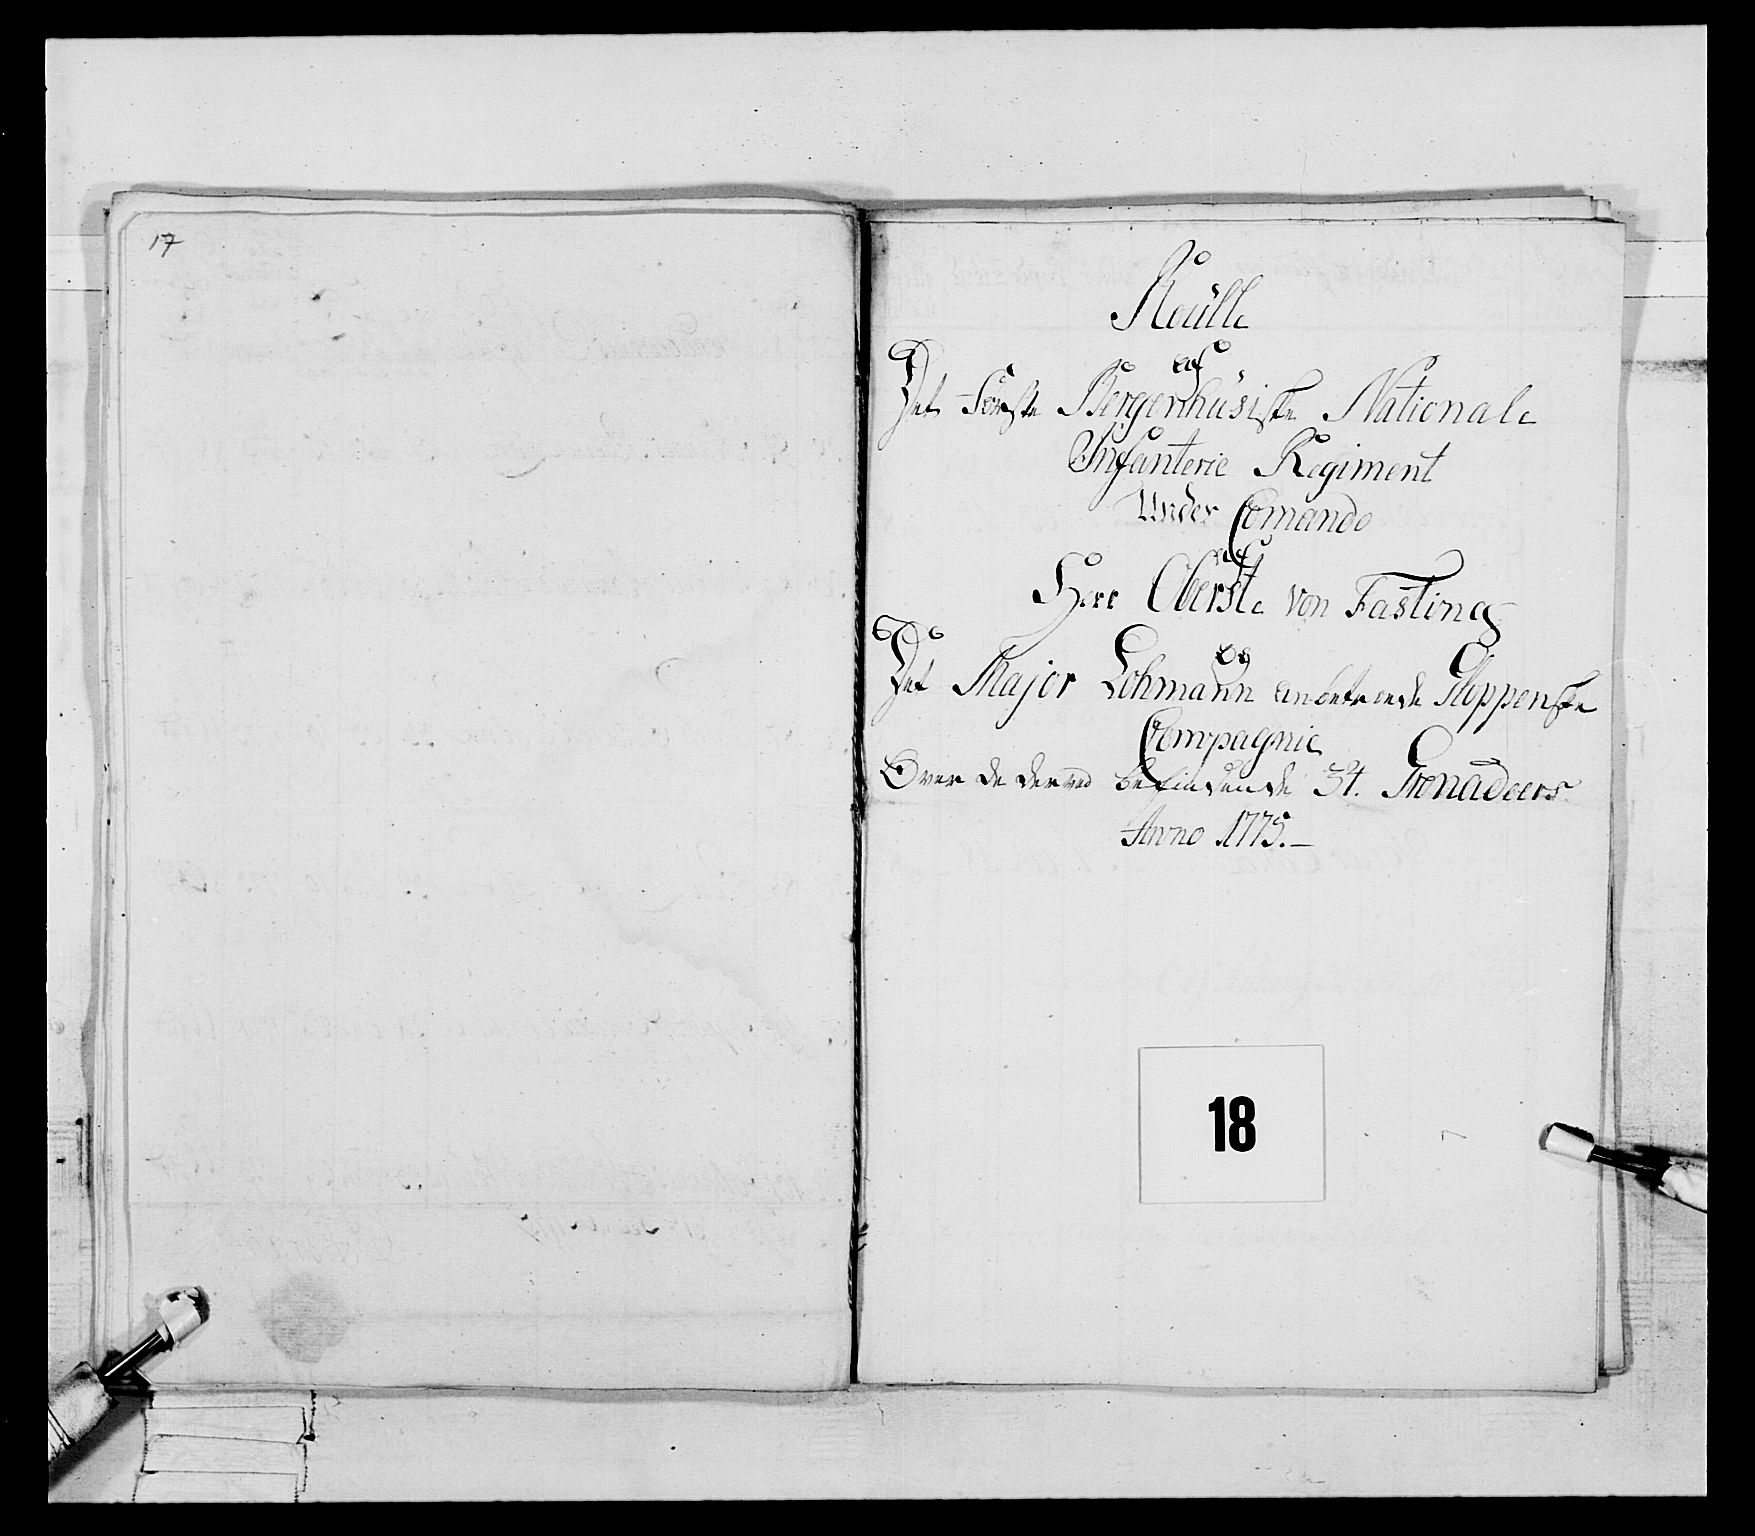 17
Roülle
af
Det Første Bergenhüsiske Nationale
Infanterie Regiment
Under Comando
af
Herr Oberste von Fasting
og
Det Major Lohmann anbetroede Gloppenske
Compagnie
Over de derved befindende 34. Grenadeers
Anno 1775.
18